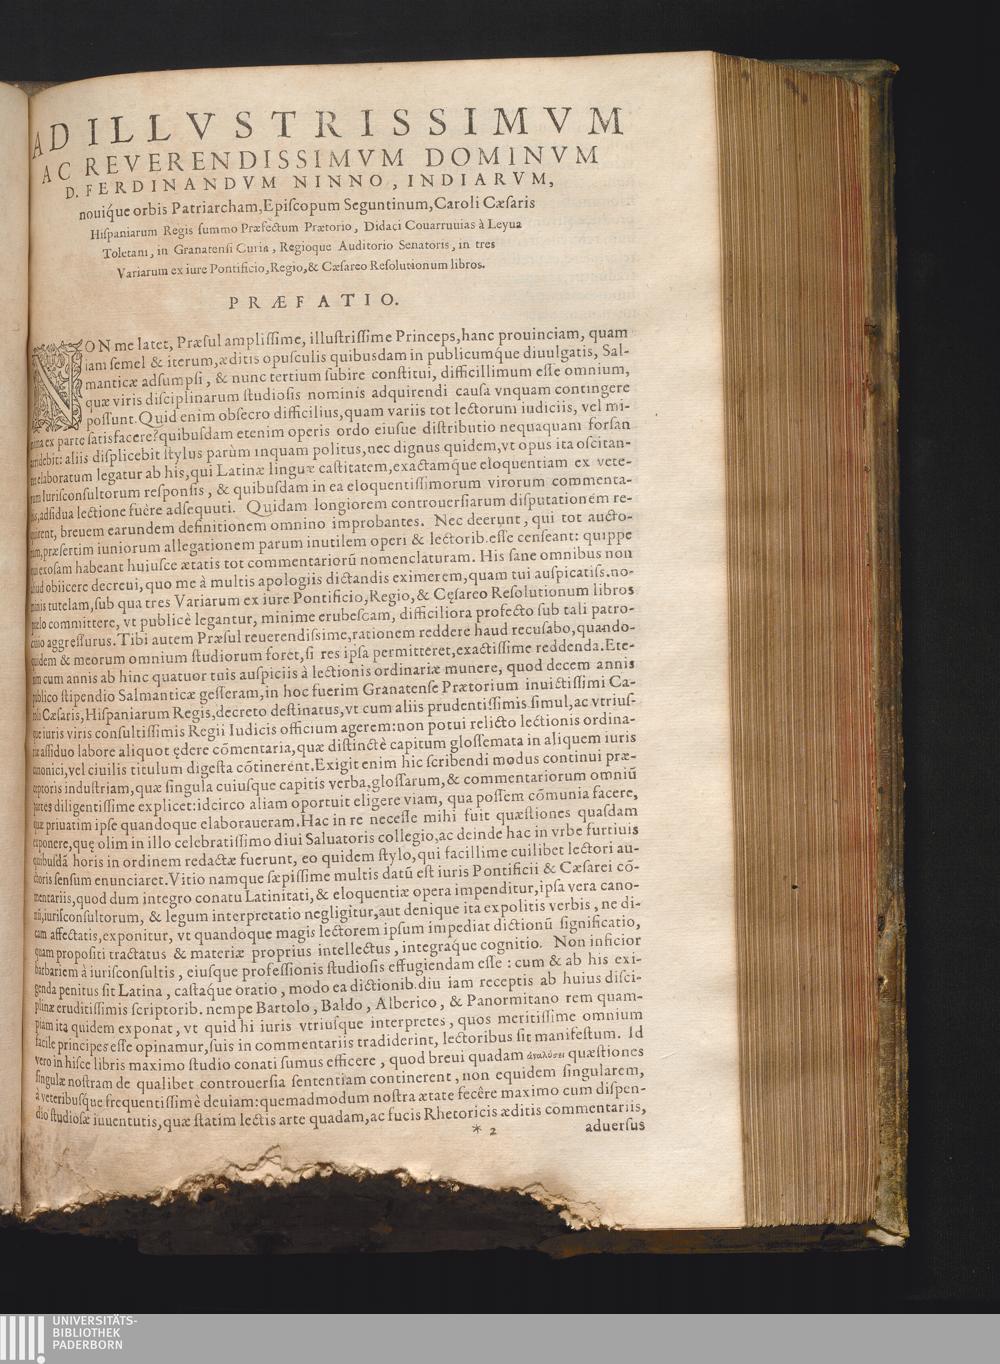 AD ILLVSTRISSIMVM
AC REVERENDISSIMVM DOMINVM
D. FERDINANDVM NINNO, INDIARVM,
nouiq́ue orbis Patriarcham, Epiſcopum Seguntinum, Caroli Cæſaris
Hiſpaniarum Regis ſummo Præfectum Prætorio, Didaci Couarruuias à Leyua
Toletani, in Granatenſi Curia, Regioque Auditorio Senatoris, in tres
Variarum ex iure Pontificio, Regio, & Cæſareo Reſolutionum libros.
PRÆFATIO.
NON me latet, Præſul ampliſſime, illuſtriſſime Princeps, hanc prouinciam, quam
iam ſemel & iterum, æditis opuſculis quibuſdam in publicumq́ue diuulgatis, Sal-
manticæ adſumpſi, & nunc tertium ſubire conſtitui, difficillimum eſſe omnium,
quæ viris diſciplinarum ſtudioſis nominis adquirendi cauſa vnquam contingere
poſſunt. Quid enim obſecro difficilius, quam variis tot lectorum iudiciis, vel mi-
nima ex parte ſatisfacere? quibuſdam etenim operis ordo eiuſue diſtributio nequaquam forſan
arridebit: aliis diſplicebit ſtylus parùm inquam politus, nec dignus quidem, vt opus ita oſcitan-
ter elaboratum legatur ab his, qui Latinæ linguæ caſtitatem, exactamq́ue eloquentiam ex vete-
rum Iuriſconſultorum reſponſis, & quibuſdam in ea eloquentiſſimorum virorum commenta-
riis, adſidua lectione fuêre adſequuti. Quidam longiorem controuerſiarum diſputationem re-
quirent, breuem earundem definitionem omnino improbantes. Nec deerunt, qui tot aucto-
rum, præſertim iuniorum allegationem parum inutilem operi & lectorib. eſſe cenſeant: quippe
qui exoſam habeant huiuſce ætatis tot commentariorũ nomenclaturam. His ſane omnibus non
aliud obiicere decreui, quo me à multis apologiis dictandis eximerem, quam tui auſpicatiſſ. no-
minis tutelam, ſub qua tres Variarum ex iure Pontificio, Regio, & Cęſareo Reſolutionum libros
prælo committere, vt publicè legantur, minime erubeſcam, difficiliora profecto ſub tali patro-
cinio aggreſſurus. Tibi autem Præſul reuerendiſſime, rationem reddere haud recuſabo, quando-
quidem & meorum omnium ſtudiorum foret, ſi res ipſa permitteret, exactiſſime reddenda. Ete-
nim cum annis ab hinc quatuor tuis auſpiciis à lectionis ordinariæ munere, quod decem annis
publico ſtipendio Salmanticæ geſſeram, in hoc fuerim Granatenſe Prætorium inuictiſſimi Ca-
roli Cæſaris, Hiſpaniarum Regis, decreto deſtinatus, vt cum aliis prudentiſſimis ſimul, ac vtriuſ-
que iuris viris conſultiſſimis Regii Iudicis officium agerem: non potui relicto lectionis ordina-
riæ aſſiduo labore aliquot ędere cõmentaria, quæ diſtinctè capitum gloſſemata in aliquem iuris
canonici, vel ciuilis titulum digeſta cõtinerent. Exigit enim hic ſcribendi modus continui præ-
ceptoris induſtriam, quæ ſingula cuiuſque capitis verba, gloſſarum, & commentariorum omniũ
partes diligentiſſime explicet: idcirco aliam oportuit eligere viam, qua poſſem cõmunia facere,
quæ priuatim ipſe quandoque elaboraueram. Hac in re neceſſe mihi fuit quæſtiones quaſdam
exponere, quę olim in illo celebratiſſimo diui Saluatoris collegio, ac deinde hac in vrbe furtiuis
quibuſdã horis in ordinem redactæ fuerunt, eo quidem ſtylo, qui facillime cuilibet lectori au-
ctoris ſenſum enunciaret. Vitio namque ſæpiſſime multis datũ eſt iuris Pontificii & Cæſarei cõ-
mentariis, quod dum integro conatu Latinitati, & eloquentiæ opera impenditur, ipſa vera cano-
nũ, iuriſconſultorum, & legum interpretatio negligitur, aut denique ita expolitis verbis, ne di-
cam affectatis, exponitur, vt quandoque magis lectorem ipſum impediat dictionũ ſignificatio,
quam propoſiti tractatus & materiæ proprius intellectus, integraq́ue cognitio. Non inficior
barbariem à iuriſconſultis, eiuſque profeſſionis ſtudioſis effugiendam eſſe: cum & ab his exi-
genda penitus ſit Latina, caſtaq́ue oratio, modo ea dictionib. diu iam receptis ab huius diſci-
plinæ eruditiſſimis ſcriptorib. nempe Bartolo, Baldo, Alberico, & Panormitano rem quam-
piam ita quidem exponat, vt quid hi iuris vtriuſque interpretes, quos meritiſſime omnium
facile principes eſſe opinamur, ſuis in commentariis tradiderint, lectoribus ſit manifeſtum. Id
vero in hiſce libris maximo ſtudio conati ſumus efficere, quod breui quadam ἀναλύσει quæſtiones
ſingulæ noſtram de qualibet controuerſia ſententiam continerent, non equidem ſingularem,
à veteribuſq́ue frequentiſſimè deuiam: quemadmodum noſtra ætate fecêre maximo cum diſpen-
dio ſtudioſæ iuuentutis, quæ ſtatim lectis arte quadam, ac fucis Rhetoricis æditis commentariis,
* 2
aduerſus
UNIVERSITÄTS-
BIBLIOTHEK
PADERBORN